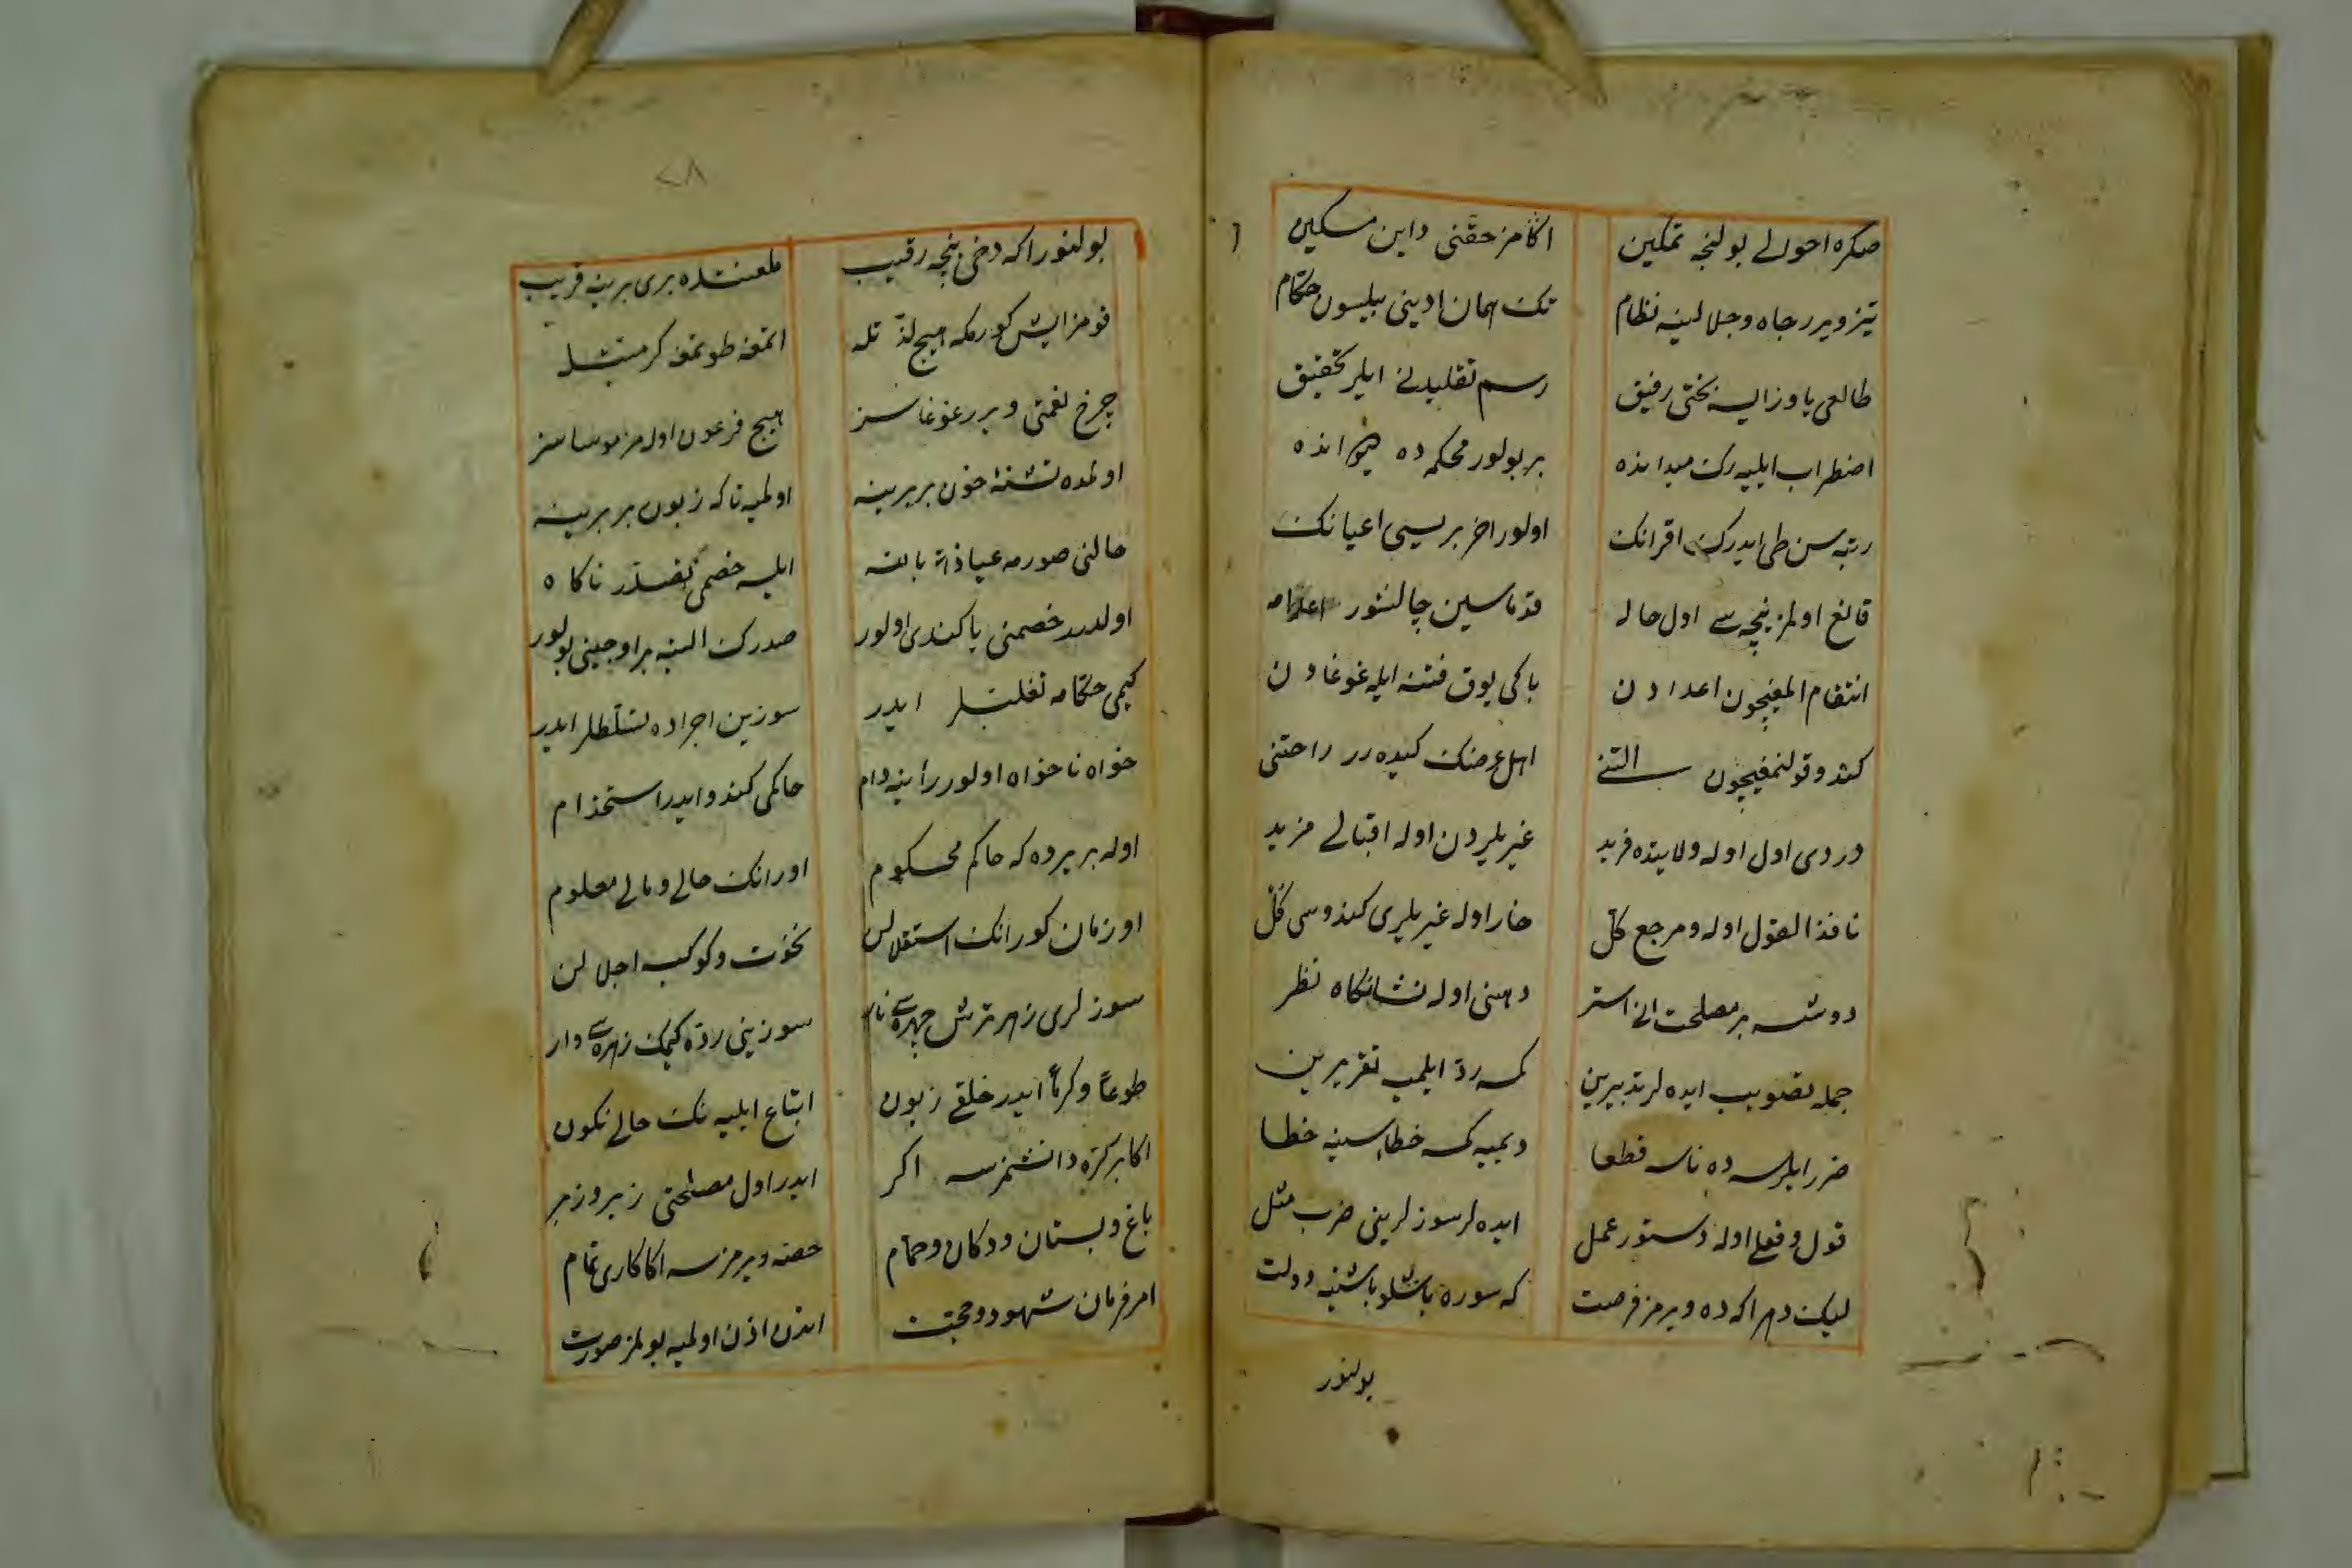 صكره احوالی بولنجه تمكین
اكامز حقنی داین مسكین
تیز ویرر جاه و جلالینه نظام
تك همان ادینی بیلسون حكام
طالعی یاوز ایسه بختی رفیق
رسم تقلیدنی ایلر تحقیق
اضطراب ایلیه رك میدانده
بر بولور محكمه ده
رتبه سن طی ایدرك اقرانك
اولور اخر بریسی اعیانك
قانع اولمز نیجه سی اول حاله
قدماسین چالشور
انتقام المغیچون اعدادن
باكی یوق فتنه ایله غوغادن
كندو قولنمغیچون
اهل عرضك كیده رر راحتنی
دردی اول اوله ولایتده فرید
غیریلردن اوله اقبالی مزید
نافذ القول اوله و مرجع كل
خار اوله غیریلری كندوسی كل
دوشسه بر مصلحت انی استر
دهنی اوله نشانكاه نظر
جمله تصویب ایده لر تدبیرین
كمسه رد ایلمیه تقریرین
ضرر ایلرسه ده ناسه قطعا
دیمیه كمسه خطاسینه خطا
قول و فعلی اوله دستور عمل
ایده لر سوزلرینی ضرب مثل
لیك دهر اكه ده ویرمز فرصت
كه سوره باشلو باشنه دولت
بولنور
٢٨
بولنور اكه دخی نیجه رقیب
ملعنتده بری برینه قریب
قومز ایش كورمكه هیچ لذتله
اتمغه طوتمغه كرمیتله
چرخ نعمتی ویرر غوغاسز
هیچ فرعون اوله مز موساسز
اولمده تشنهٔ خون بربرینه
اولمیه تا كه زبون بربرینه
حالنی صورمه عیاذا بالله
ایلسه خصمی تصدر ناكاه
اولدرر خصمنی یا كندی اولور
صدرك البته بر اوجینی بولور
كیمی حكامه تغلبلر ایدر
سوزین اجراده تسلطلر ایدر
خواه ناخواه اولور رأینه رام
حاكمی كندو ایدر استخدام
اوله بر یرده كه حاكم محكوم
اورانك حالی و مالی معلوم
او زمان كور انك استقلالن
نخوت و كوكبه اجلالن
سوزلری زهر ترش چهره سی نار
سوزینی رده كیمك زهره سی وار
طوعا و كرها ایدر خلقی زبون
اتباع ایلیه نك حالی نكون
اكا بر كره دانشمزسه اكر
ایدر اول مصلحتی زیر و زبر
باغ و بستان و دكان و حمام
حصه ویرمزسه اكا كاری تمام
امر فرمان شهود و حجت
اندن اذن اولمیه بولمز صورت